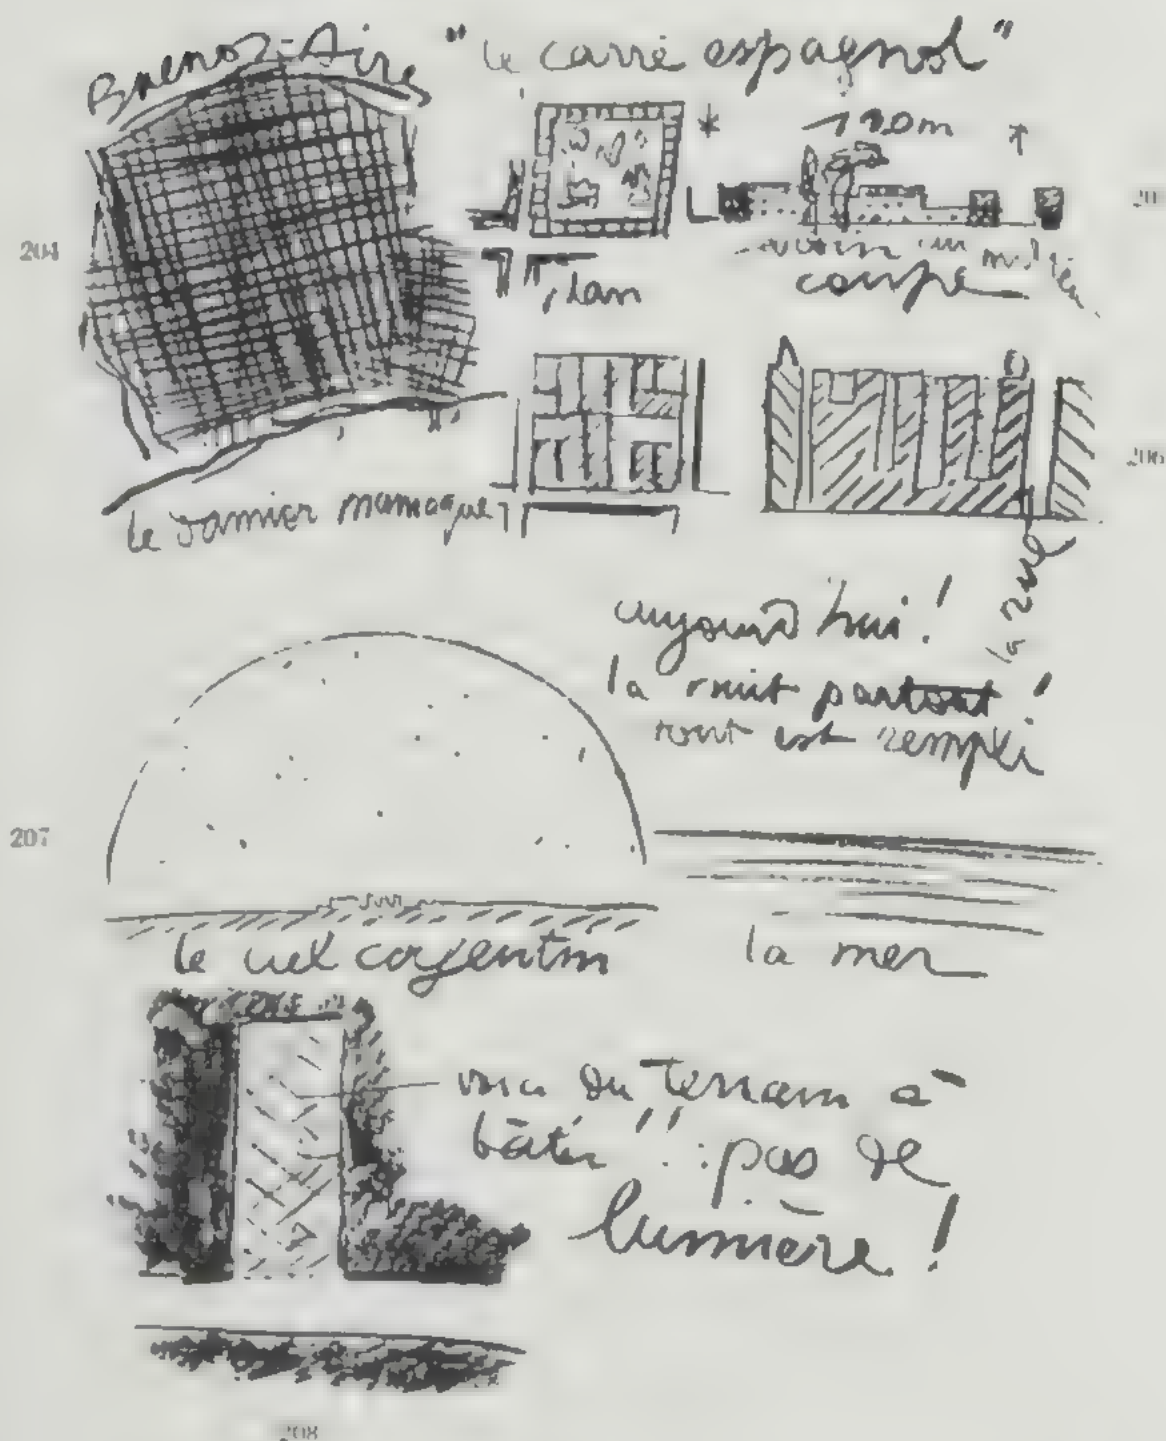 Buenos-Aires
"le carré espagnol"
120m
204
plan
coupe
206
le damier
la rue
aujourd'hui!
la nuit partout!
tout est rempli
207
le ciel argentin
la mer
voici du terrain à
bâtir!! : pas de
lumière!
208